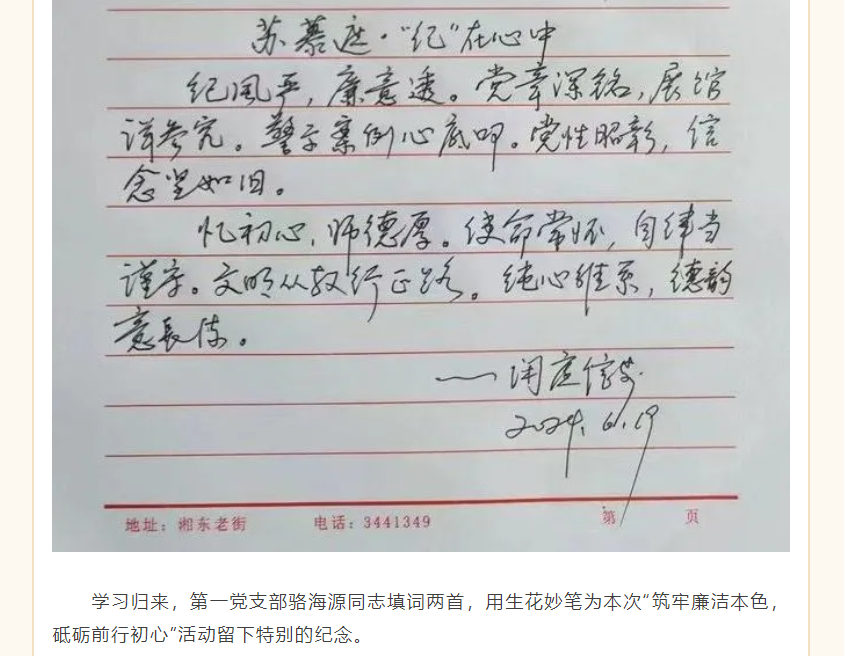 苏慕遮·“纪”在心中
纪风严，廉意透。党章深铭，展馆
详参究。警示案例心底叩。党性昭彰，信
念坚如旧。
忆初心，师德厚。使命常怀，自律当
谨守。文明从教行正路。纯心维系，德韵
意长流。
——闲庭信步
2024.6.19
地址：湘东老街 电话：3441349 第 页
学习归来，第一党支部骆海源同志填词两首，用生花妙笔为本次“筑牢廉洁本色，
砥砺前行初心”活动留下特别的纪念。